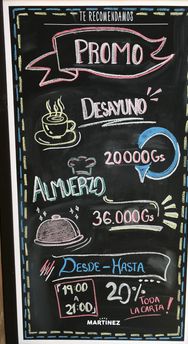 TE RECOMENDAMOS
PROMO
DESAYUNO
20.000Gs
ALMUERZO
36.000Gs
DESDE-HASTA
19:00
A
21:00
20%
TODA
LA CARTA!
MARTÍNEZ